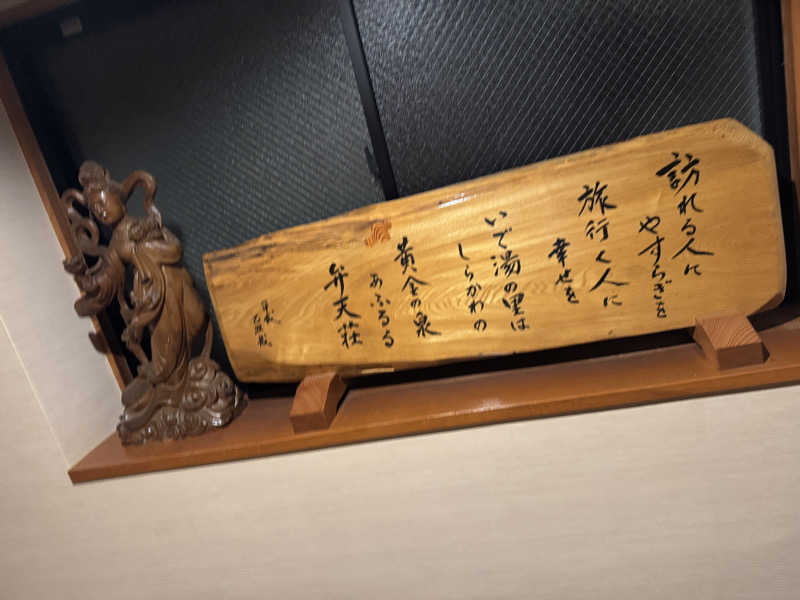 訪れる人に
やすらぎを
旅行く人に
幸せを
いで湯の里は
しらかわの
黄金の泉
あふるる
弁天荘